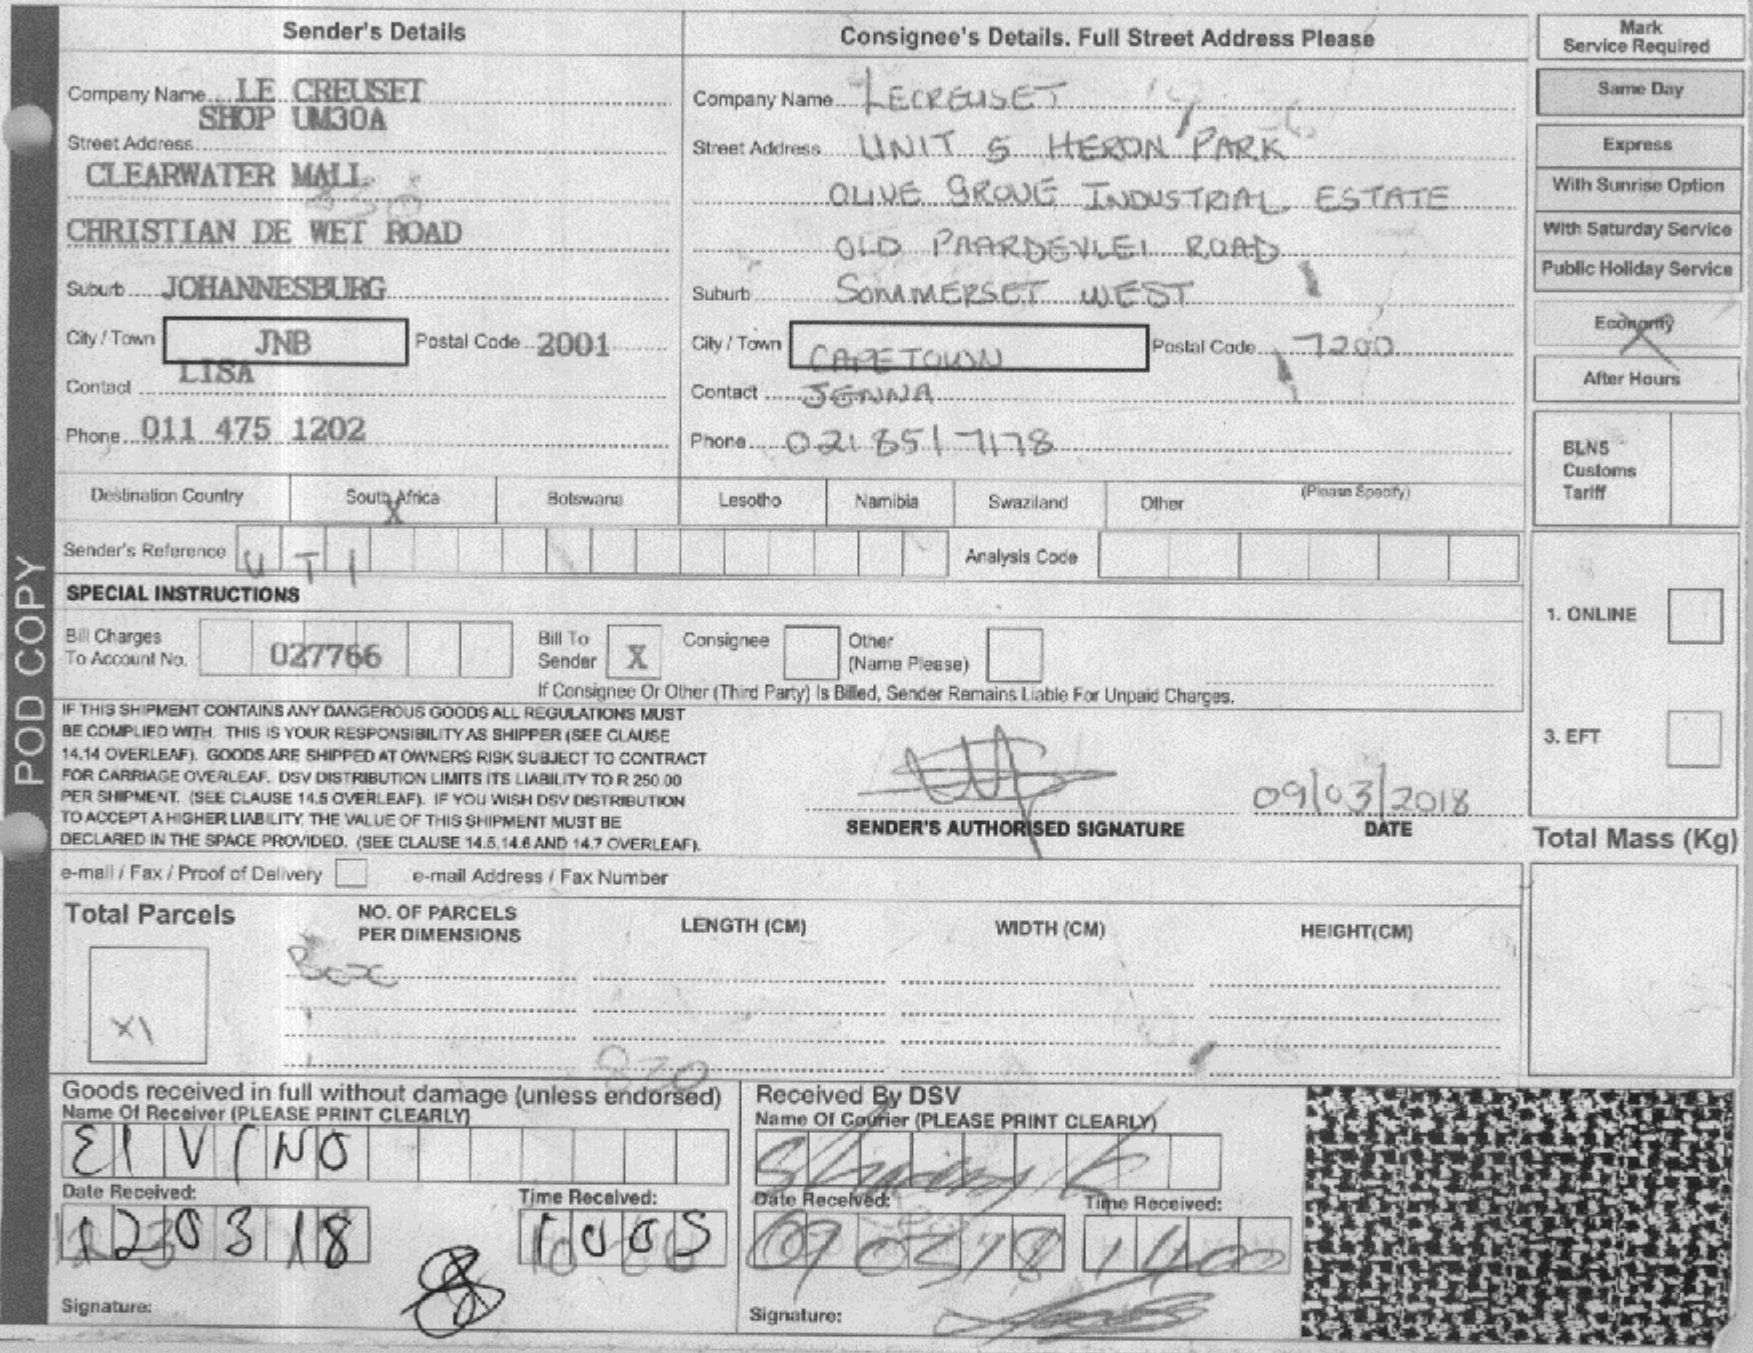 POD COPY
Sender's Details
Company Name LE CREUSET
SHOP UM30A
Street Address
CLEARWATER MALL
CHRISTIAN DE WET ROAD
Suburb JOHANNESBURG
City / Town JNB Postal Code 2001
Contact LISA
Phone 011 475 1202
Consignee's Details. Full Street Address Please
Company Name LECREUSET
Street Address UNIT 5 HERON PARK
OLIVE GROVE INDUSTRIAL ESTATE
OLD PAARDEVLEI ROAD
Suburb SOMMERSET WEST
City / Town CAPETOWN Postal Code 7200
Contact JENNA
Phone 021 851 7178
Mark
Service Required
Same Day
Express
With Sunrise Option
With Saturday Service
Public Holiday Service
Economy X
After Hours
BLNS
Customs
Tariff
Destination Country South Africa X Botswana Lesotho Namibia Swaziland Other (Please Specify)
Sender's Reference U T I Analysis Code
SPECIAL INSTRUCTIONS
Bill Charges
To Account No. 027766
Bill To
Sender X
Consignee
Other
(Name Please)
If Consignee Or Other (Third Party) Is Billed, Sender Remains Liable For Unpaid Charges.
1. ONLINE
3. EFT
IF THIS SHIPMENT CONTAINS ANY DANGEROUS GOODS ALL REGULATIONS MUST
BE COMPLIED WITH. THIS IS YOUR RESPONSIBILITY AS SHIPPER (SEE CLAUSE
14.14 OVERLEAF). GOODS ARE SHIPPED AT OWNERS RISK SUBJECT TO CONTRACT
FOR CARRIAGE OVERLEAF. DSV DISTRIBUTION LIMITS ITS LIABILITY TO R 250.00
PER SHIPMENT. (SEE CLAUSE 14.5 OVERLEAF). IF YOU WISH DSV DISTRIBUTION
TO ACCEPT A HIGHER LIABILITY, THE VALUE OF THIS SHIPMENT MUST BE
DECLARED IN THE SPACE PROVIDED. (SEE CLAUSE 14.5,14.6 AND 14.7 OVERLEAF).
SENDER'S AUTHORISED SIGNATURE
09/03/2018
DATE
Total Mass (Kg)
e-mail / Fax / Proof of Delivery e-mail Address / Fax Number
Total Parcels
X1
NO. OF PARCELS
PER DIMENSIONS
LENGTH (CM) WIDTH (CM) HEIGHT(CM)
Box
820
Goods received in full without damage (unless endorsed)
Name Of Receiver (PLEASE PRINT CLEARLY)
ELVINO
Date Received: Time Received:
120318 1005
Signature:
Received By DSV
Name Of Courier (PLEASE PRINT CLEARLY)
Date Received: Time Received:
090318 1400
Signature: